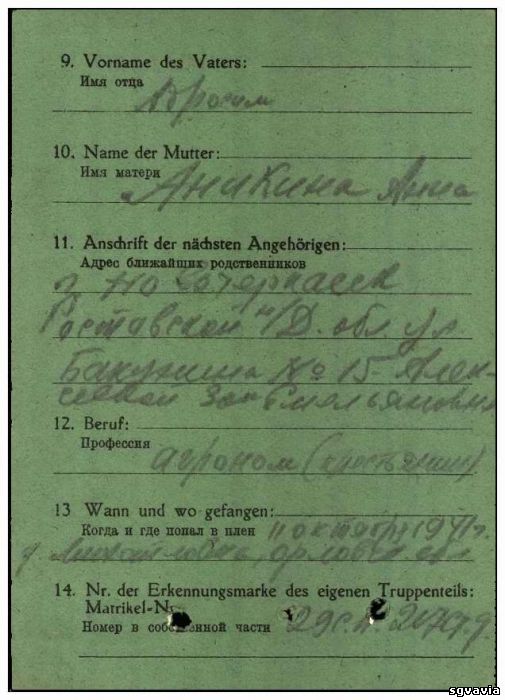 9. Vorname des Vaters:
Имя отца
Абросим
10. Name der Mutter:
Имя матери
Аникина Анна
11. Anschrift der nächsten Angehörigen:
Адрес ближайших родственников
г. Новочеркасск
Ростовской н/Д. обл ул.
Бакунина № 15 Алек-
сеевой Емельяновны
12. Beruf:
Профессия
агроном (крестьянин)
13 Wann und wo gefangen:
Когда и где попал в плен 11 октября 1941 г.
д. Михайловка, орловск об
14. Nr. der Erkennungsmarke des eigenen Truppenteils:
Matrikel-Nr.
Номер в собственной части
sgvavia